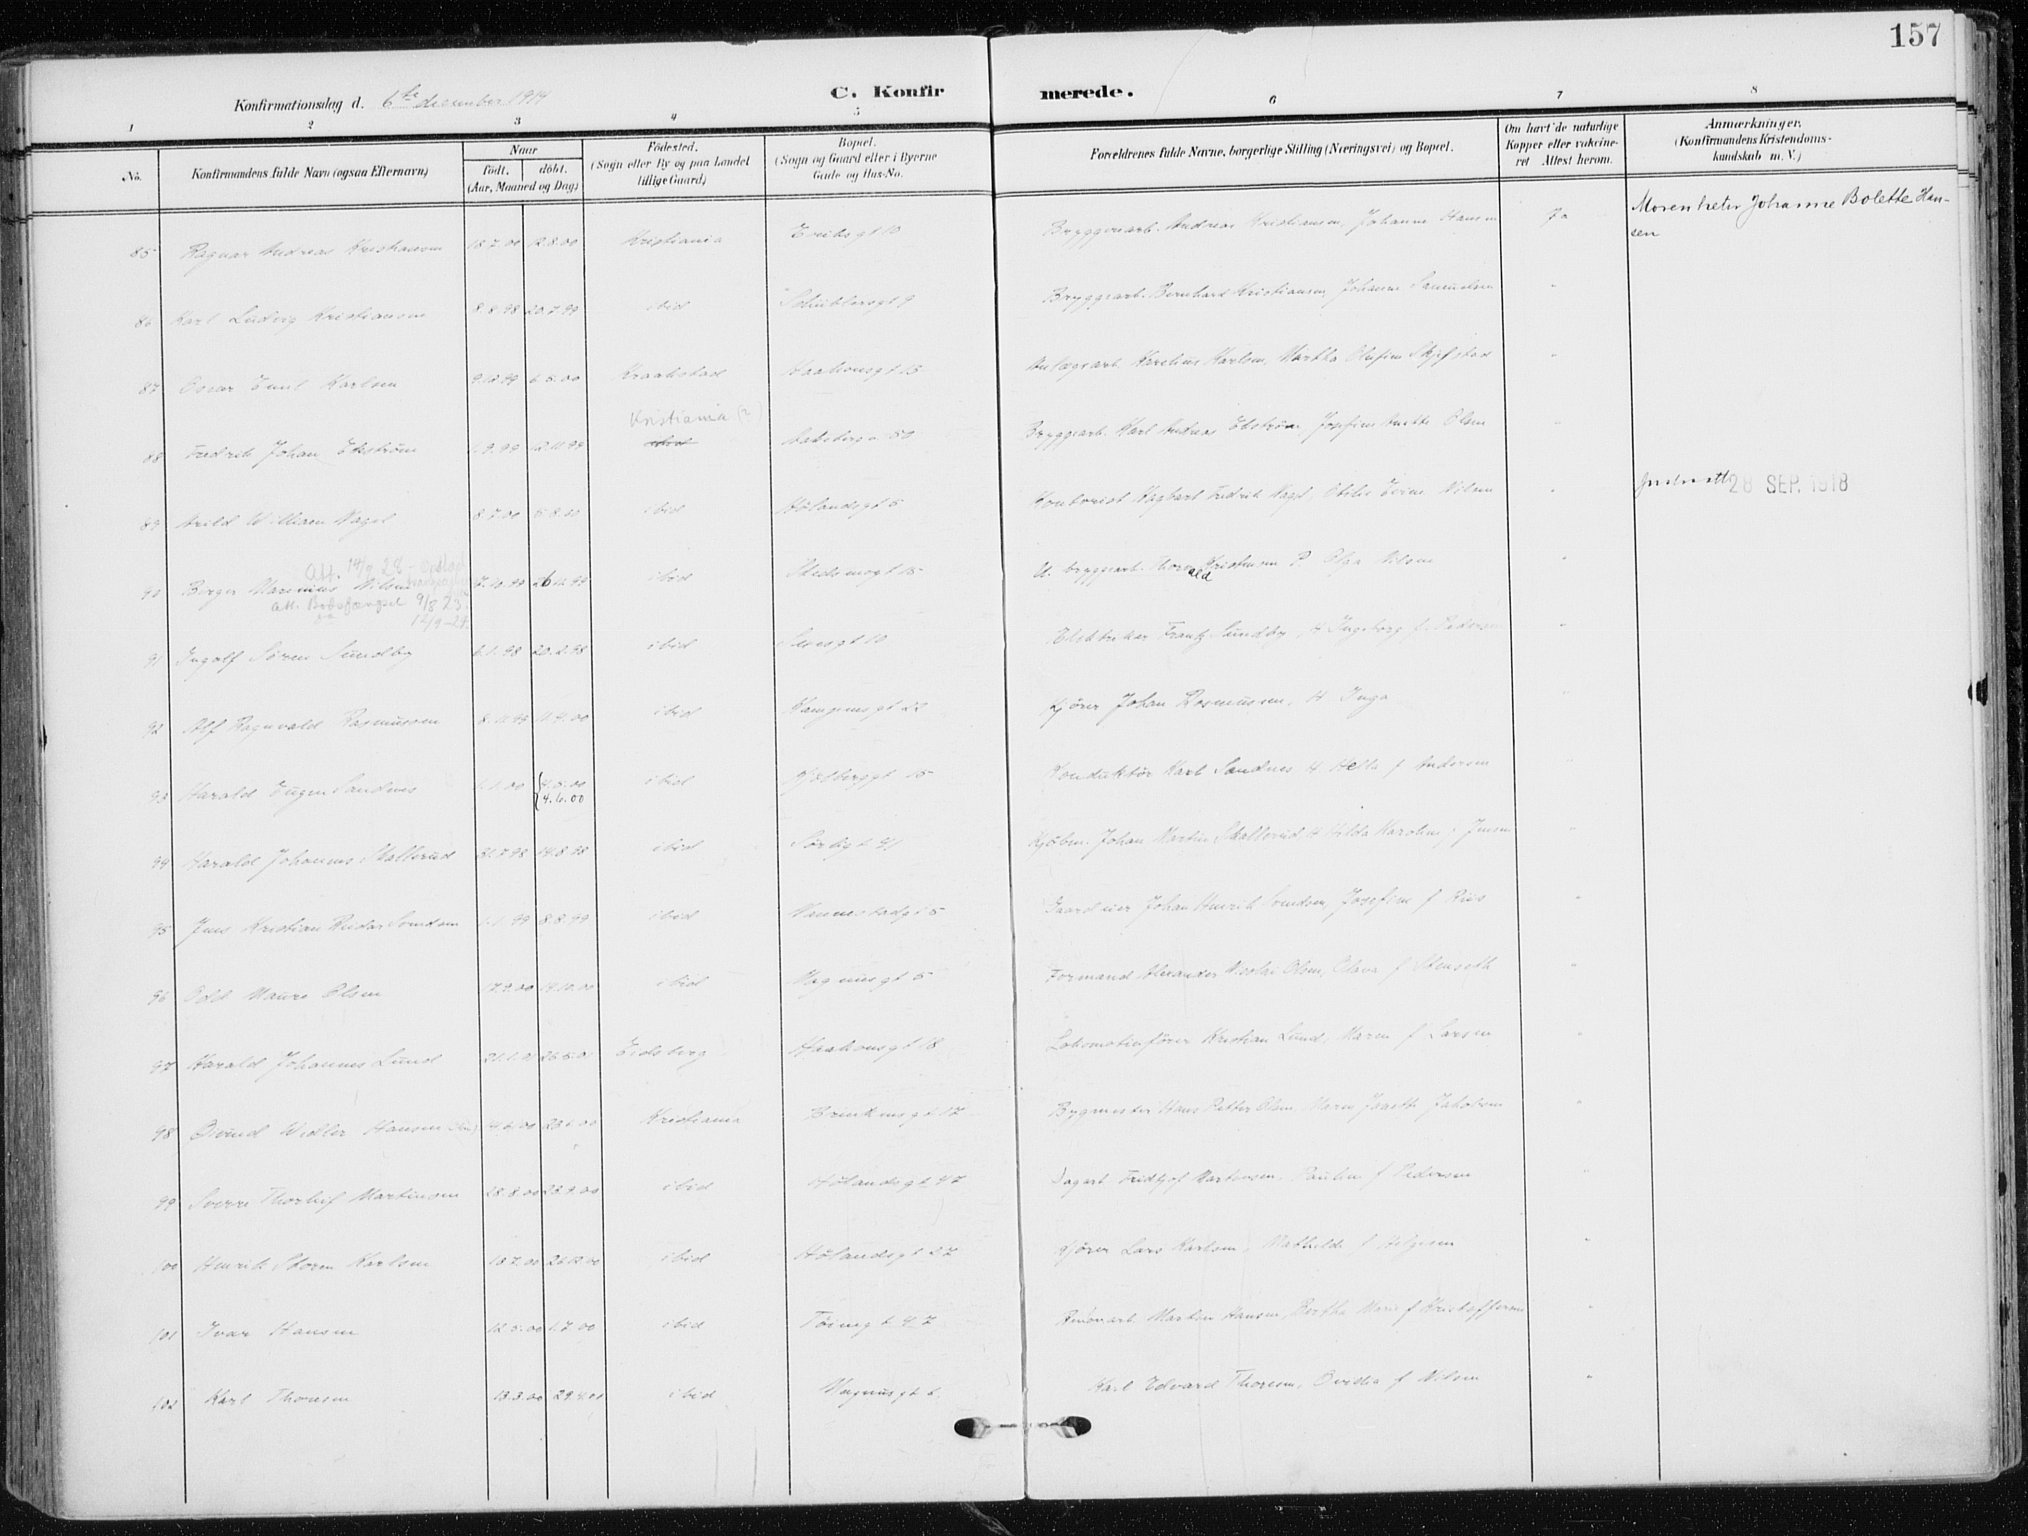 157
Konfirmationsdag d. 6te december 1914
C. Konfirmerede.
1 2 3 4 5 6 7 8
No. Konfirmandens fulde Navn (ogsaa Efternavn) Naar födt. döbt. (Aar, Maaned og Dag) Födested. (Sogn eller By og paa Landet tillige Gaard) Bopæl. (Sogn og Gaard eller i Byerne Gade og Hus-No. Forældrenes fulde Navne, borgerlige Stilling (Næringsvei) og Bopæl. Om havt de naturlige Kopper eller vaccineret Attest herom. Anmærkninger. (Konfirmandens Kristendomskundskab m. V.)
85 Ragnar Andreas Kristiansen 18.7.00 12.8.00 Kristiania Eriksgt 10 Bryggeriarb. Andreas Kristiansen, Johanne Hansen Ja Moren heter Johanne Bolette Hansen
86 Karl Ludvig Kristiansen 8.8.98 20.7.99 ibid Schüblersgt 9 Bryggearb. Bernhard Kristiansen, Johanne Samuelsen "
87 Oscar Emil Karlsen 9.12.99 6.5.00 Kraakstad Haakonsgt 15 Anlægsarb. Karelius Karlsen, Martha Olufine Skjefstad "
88 Fredrik Johan Ekström 1.9.99 12.11.99 Kristiania (?) ibid 50 Bryggearb. Karl Andreas Ekström, Josefine Anette Olsen "
89 Arild William Nagel 8.7.00 5.8.00 ibid Hölandsgt 5 Kontorist Hagbart Fredrik Nagel, Nilsen " 28 SEP. 1918
90 Birger Marenius Nilsen 7.10.99 26.11.99 ibid Skedsmogt 15 U. bryggearb. Thorvald Kristensen P. Olga Nilsen "
Att. 14/9 28 -
att. Botsfængsel 9/8 23.
12/9-27.
91 Ingolf Sören Sundby 6.1.98 20.2.98 ibid gt 10 Elektriker Frantz Sundby, H Ingeborg f. Pedersen "
92 Alf Ragnvald Rasmussen 8.11.99 11.4.00 ibid Kampensgt 22 Kjörer Johan Rasmussen, H Inga "
93 Harald Eugen Sandnes 1.1.00 4.5.00 4.6.00 ibid Kjölberggt 15 Konduktör Karl Sandnes H Hella f Andersen "
94 Harald Johannes Skallerud 31.7.98 14.8.98 ibid Sörligt 41 Kjöbm. Johan Martin Skallerud H Hilda Karoline f Jensen "
95 Jens Kristian Reidar Svendsen 1.1.99 8.8.99 ibid 5 Gaardeier Johan Henrik Svendsen, Josefine f Riis "
96 Odd Maure Olsen 17.9.00 14.10.00 ibid Magnusgt 5 Formand Alexander Nicolai Olsen, Olava f Stenseth "
97 Harald Johannes Lund 21.1.01 26.5.01 Eidsberg Haakonsgt 18 Lokomotivförer Kristian Lund, Maren f Larsen "
98 Öivind Widler Hansen 14.6.00 23.6.00 Kristiania Brinkensgt 17 Bygmester Hans Petter Olsen, Maren Josette Jakobsen "
99 Sverre Thorleif Martinsen 28.8.00 23.9.00 ibid Hölandsgt 47 Dagarb Fridtjof Martinsen, Pauline f Pedersen "
100 Henrik Storm Karlsen 13.7.00 26.12.00 ibid Hölandsgt 27 Kjörer Lars Karlsen, Mathilde f Helgesen "
101 Ivar Hansen 12.5.00 1.7.00 ibid Töiengt 47 Martin Hansen, Bertha Marie f Kristoffersen "
102 Karl Thoresen 13.3.00 29.4.00 ibid Magnusgt 6 Karl Edvard Thoresen, Ovidia f Nilsen "